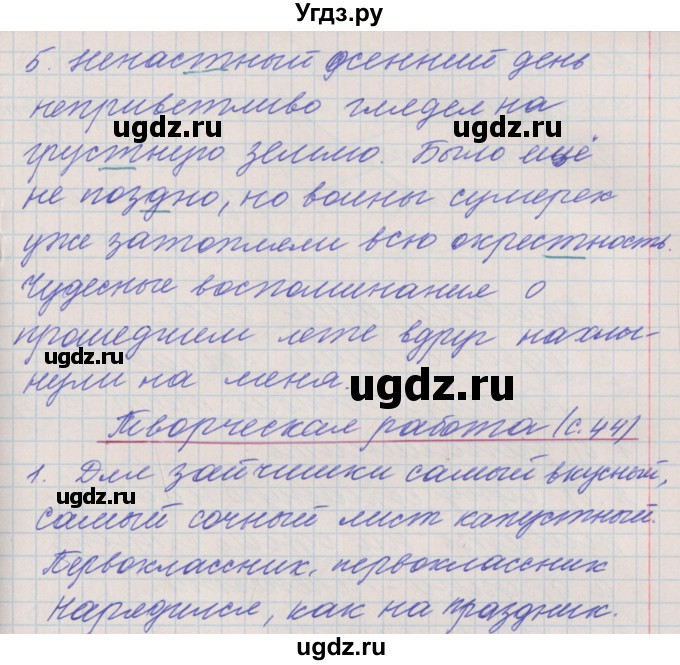 Угдз.ру
5. Ненастный осенний день
неприветливо глядел на
ugdz.ru
ugdz.ru
грустную землю. Было ещё
не поздно, но волны сумерек
уже затопляли всю окрестность.
Чудесные воспоминания о
прошедшем лете вдруг нахлы-
ugdz.ru
нули на меня.
ugdz.ru
Творческая работа (с. 44)
1. Для зайчишки самый вкусный,
ugdz.ru
ugdz.ru
самый сочный лист капустный.
Первоклассник, первоклассник
Нарядился, как на праздник.
ugdz.ru
ugdz.ru